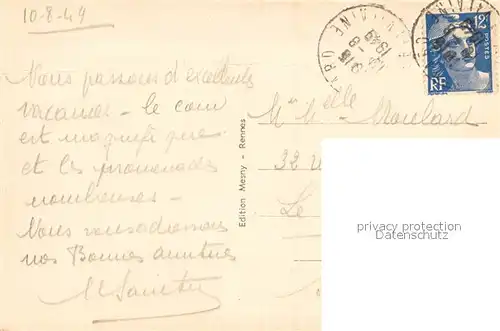 10-8-49
Nous passons d'excellentes
vacances - le coin
est magnifique
et les promenades
nombreuses -
Nous vous adressons
nos Bonnes amitiés
Edition Mesny - Rennes
12F
POSTES
RF
1949
Melle Moulard
32
Le
privacy protection
Datenschutz